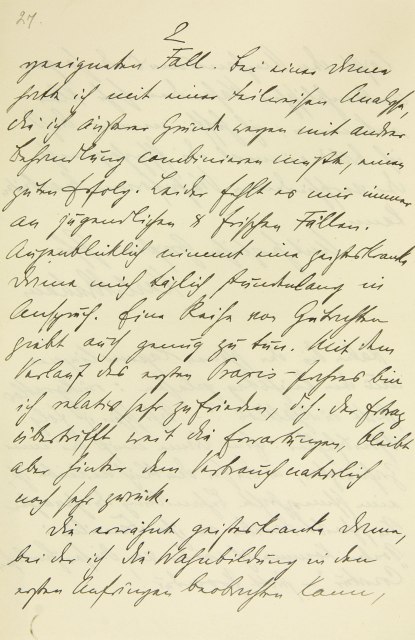 27.
2
geeigneten Fall. Bei einer Dame
hatte ich mit einer teilweisen Analyse,
die ich äußerer Gründe wegen mit andrer
Behandlung combinieren mußte, einen
guten Erfolg. Leider fehlt es mir immer
an jugendlichen & frischen Fällen.
Augenblicklich nimmt eine geisteskranke
Dame mich täglich stundenlang in
Anspruch. Eine Reihe von Gutachten
giebt auch genug zu tun. Mit dem
Verlauf des ersten Praxis-Jahres bin
ich relativ sehr zufrieden, d. h. der Ertrag
übertrifft weit die Erwartungen, bleibt
aber hinter dem Verbrauch natürlich
noch sehr zurück.
Die erwähnte geisteskranke Dame,
bei der ich die Wahnbildung in den
ersten Anfängen beobachten kann,